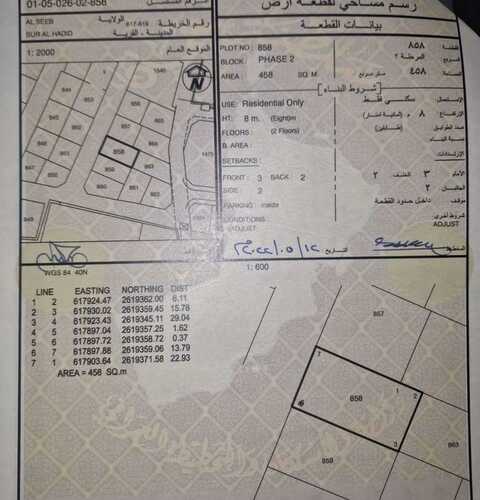 01-05-026-02-858
رسم مساحي لقطعة ارض
AL SEEB
الولاية
617-619
رقم الخريطة
SUR AL HADID
المدينة - القرية
1: 2000
الموقع العام
بيانات القطعة
PLOT NO: 858
٨٥٨
قطعة
BLOCK: PHASE 2
المرحلة ٢
مربع
AREA: 458 SQ. M
٤٥٨
شروط البناء
USE: Residential Only
سكني فقط
الاستعمال
HT: 8 m. (Eight)m
٨ م
الارتفاع
FLOORS: (2 Floors)
(طابقين)
عدد الطوابق
B. AREA:
SETBACKS:
الارتدادات
FRONT: 3 BACK 2
الامام ٣ الخلف ٢
SIDE: 2
الجانبان ٢
PARKING: Inside
داخل حدود القطعة
CONDITIONS:
شروط اخرى
ADJUST
ADJUST
التاريخ
858
WGS 84 40N
1: 600
LINE EASTING NORTHING DIST
1 2 617924.47 2619362.00 6.11
2 3 617930.02 2619359.45 15.78
3 4 617923.43 2619345.11 29.04
4 5 617897.04 2619357.25 1.62
5 6 617897.72 2619358.72 0.37
6 7 617897.88 2619359.06 13.79
7 1 617903.64 2619371.58 22.93
AREA = 458 SQ.m
857
7
858
1
2
3
863